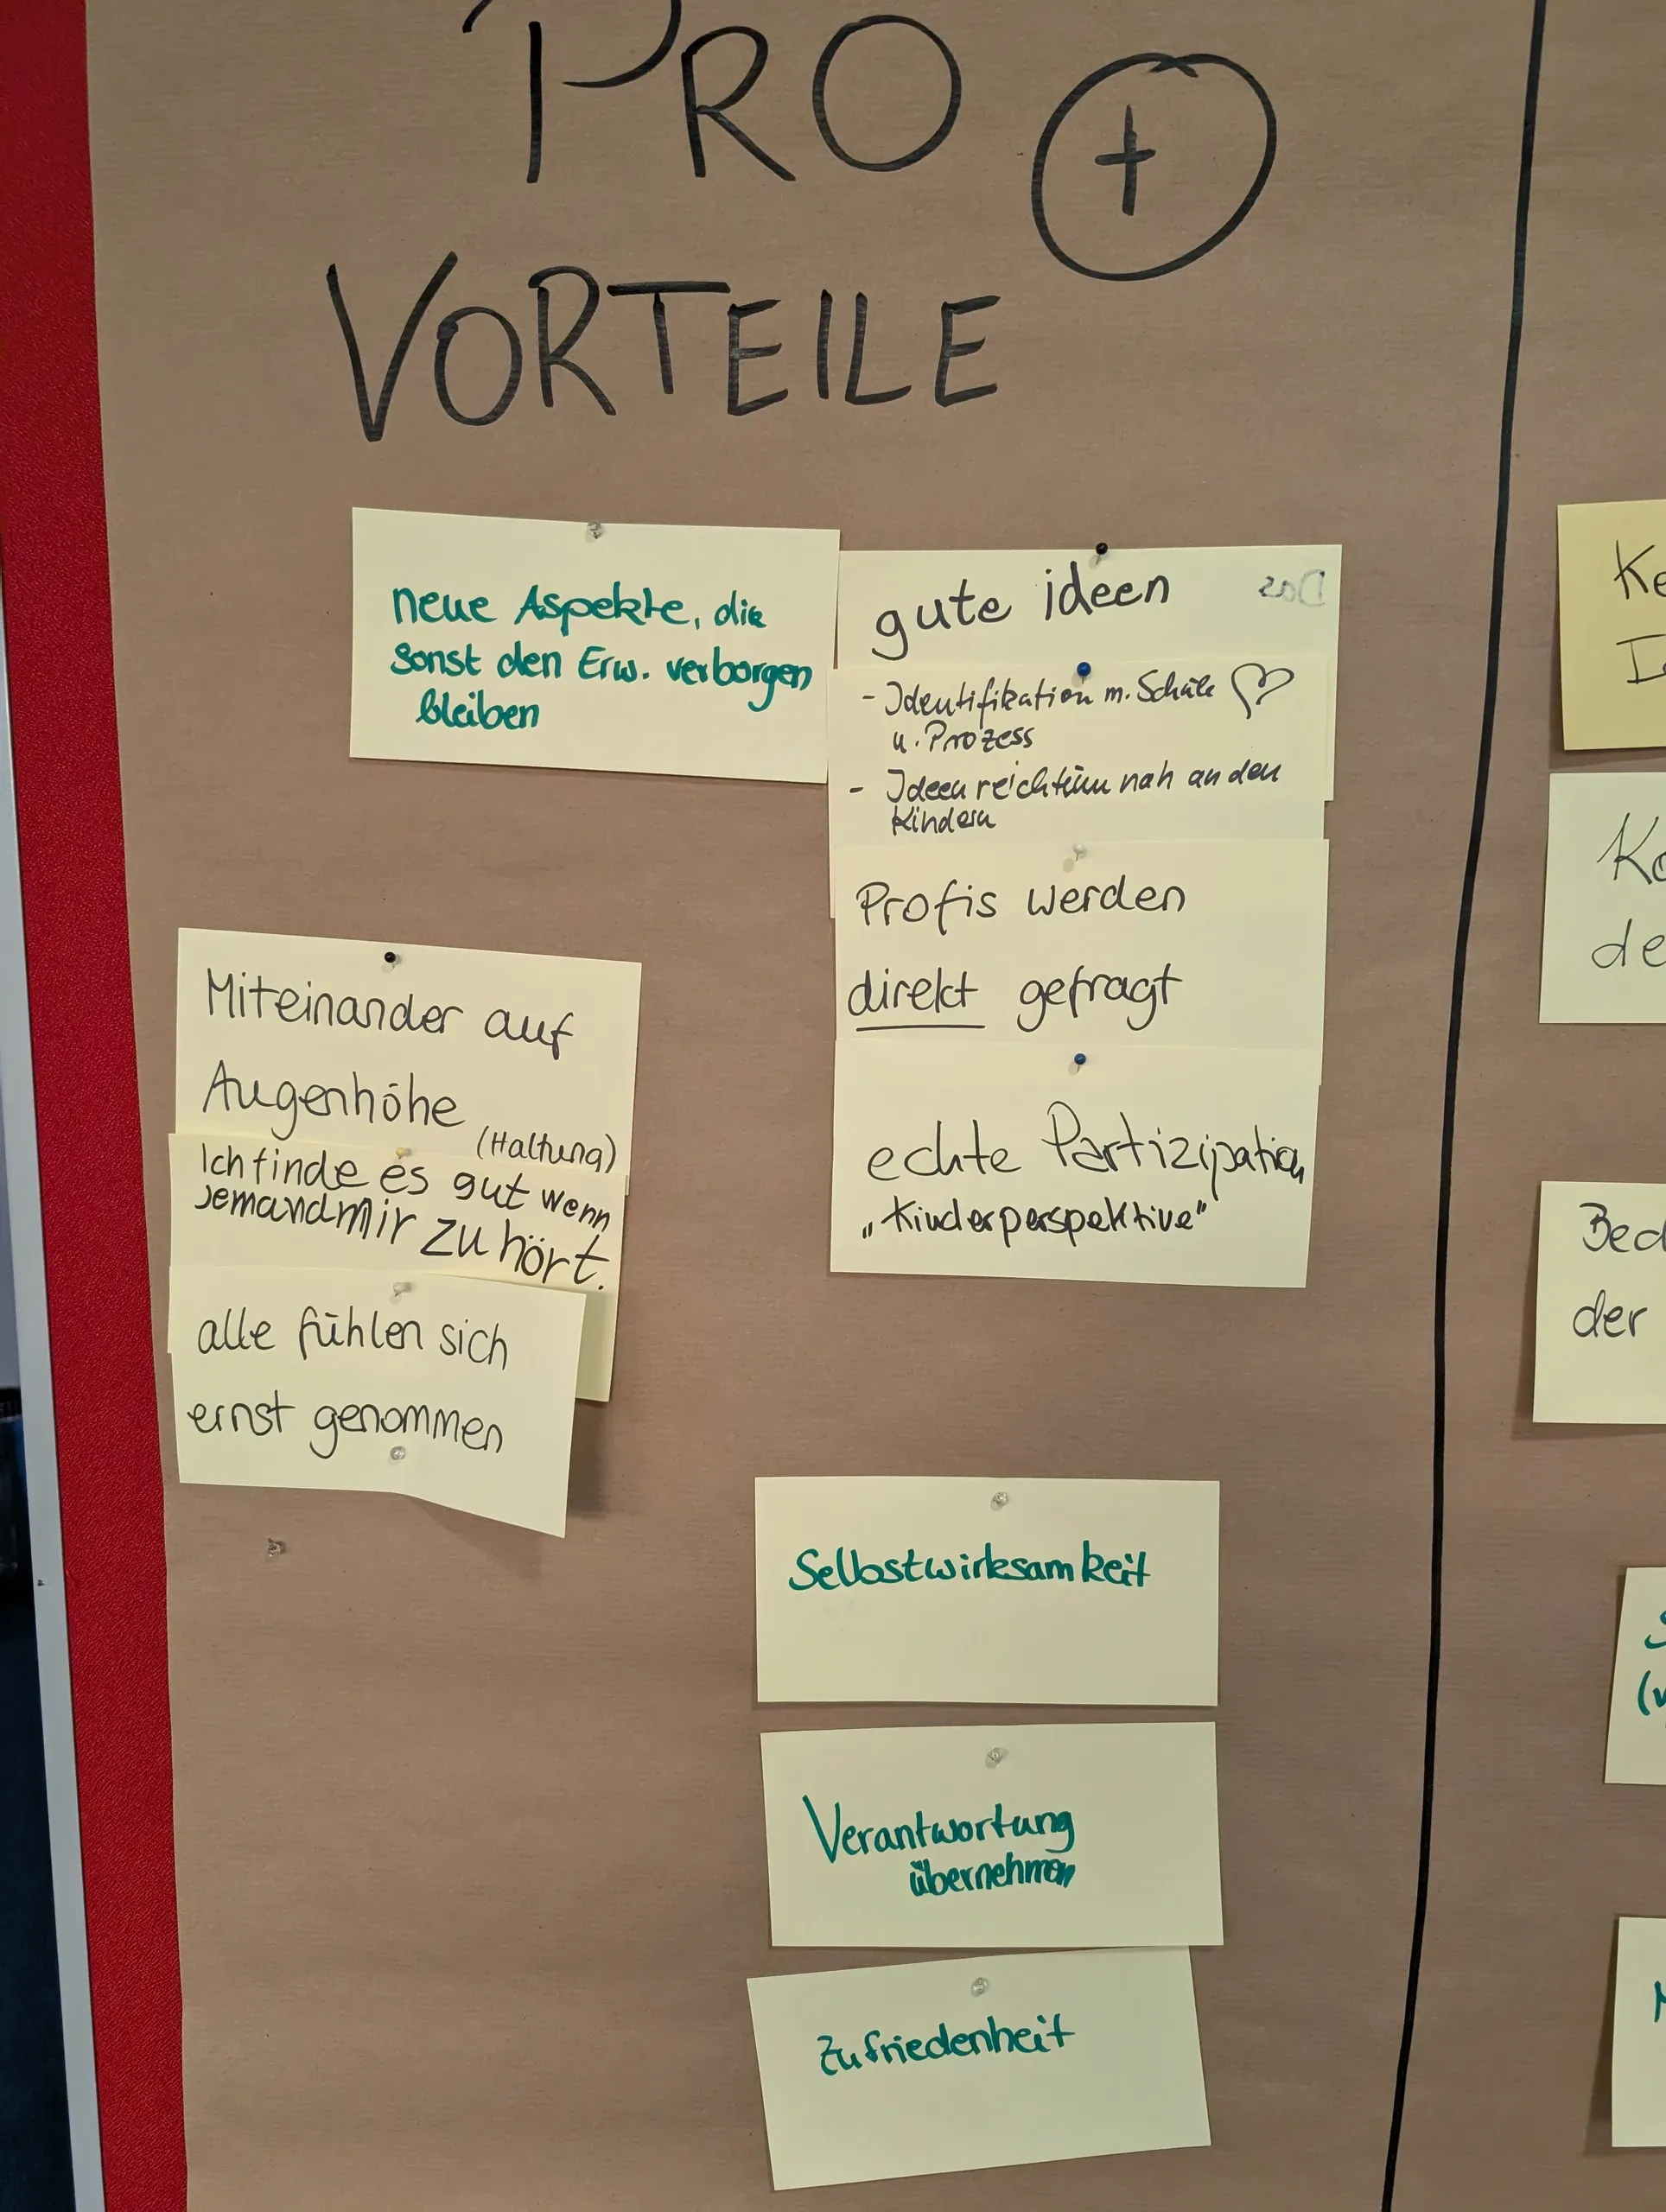 PRO +
VORTEILE
neue Aspekte, die
sonst den Erw. verborgen
bleiben
gute ideen
- Identifikation m. Schule
u. Prozess
- Ideenreichtum nah an den
Kindern
Profis werden
direkt gefragt
echte Partizipation
„Kinderperspektive"
Miteinander auf
Augenhöhe
(Haltung)
Ich finde es gut wenn
jemand mir zu hört.
alle fühlen sich
ernst genommen
Selbstwirksamkeit
Verantwortung
übernehmen
Zufriedenheit
Ke
Ko
de
Bed
der